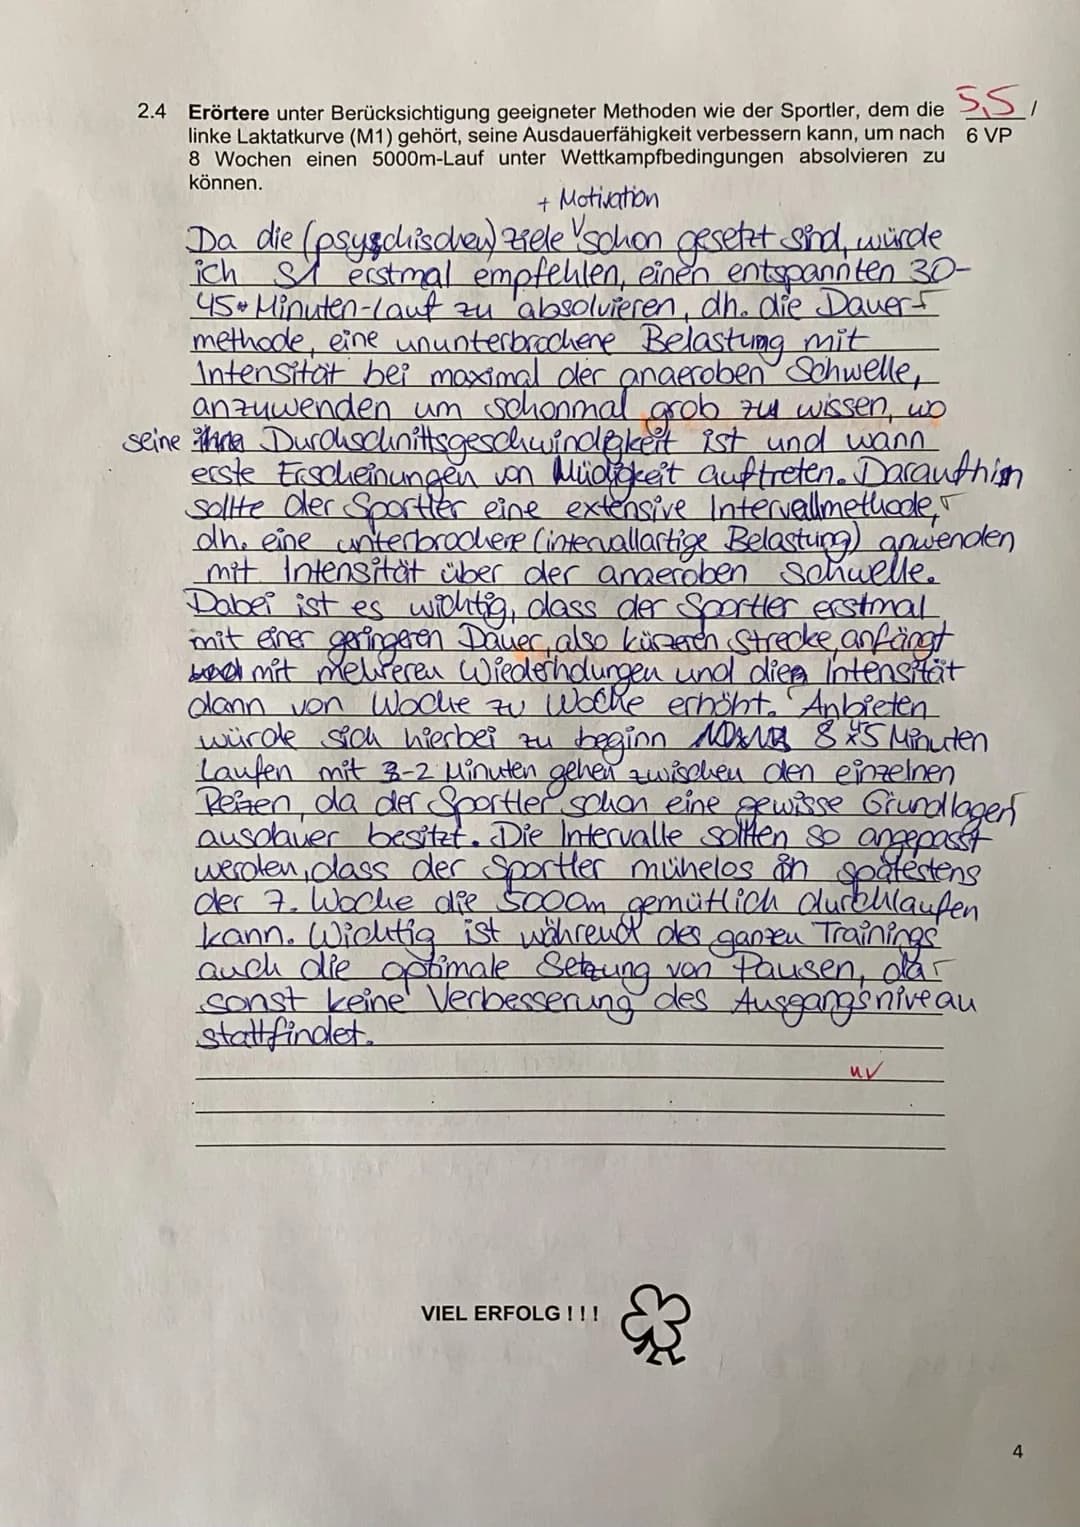 2.4 Erörtere unter Berücksichtigung geeigneter Methoden wie der Sportler, dem die
linke Laktatkurve (M1) gehört, seine Ausdauerfähigkeit verbessern kann, um nach
8 Wochen einen 5000m-Lauf unter Wettkampfbedingungen absolvieren zu
können.
5,5 /
6 VP
+ Motivation
Da die (psychischen) Ziele schon gesetzt sind, würde
ich erstmal empfehlen, einen entspannten 30-
45-Minuten-Lauf zu absolvieren, dh. die Dauer-
methode, eine ununterbrochene Belastung mit
Intensität bei maximal der anaeroben Schwelle,
anzuwenden um schonmal grob zu wissen, wo
seine Durchschnittsgeschwindigkeit ist und wann
erste Erscheinungen von Müdigkeit auftreten. Daraufhin
sollte der Sportler eine extensive Intervallmethode,
dh. eine unterbrochere (intervallartige Belastung) anwenden
mit Intensität über der anaeroben Schwelle.
Dabei ist es wichtig, dass der Sportler erstmal
mit einer geringeren Dauer, also kürzeren Strecke, anfängt
mit mehreren Wiederholungen und die Intensität
dann von Woche zu Woche erhöht. Anbieten
würde sich hierbei zu beginn 8 x 5 Minuten
Laufen mit 3-2 Minuten gehen zwischen den einzelnen
Reizen, da der Sportler schon eine gewisse Grundlagen
ausdauer besitzt. Die Intervalle sollten so angepasst
werden, dass der Sportler mühelos in spätestens
der 7. Woche die 5000m gemütlich durchlaufen
kann. Wichtig ist während des ganzen Trainings
auch die optimale Setzung von Pausen, da
sonst keine Verbesserung des Ausgangsniveau
stattfindet.
VIEL ERFOLG ! ! !
4